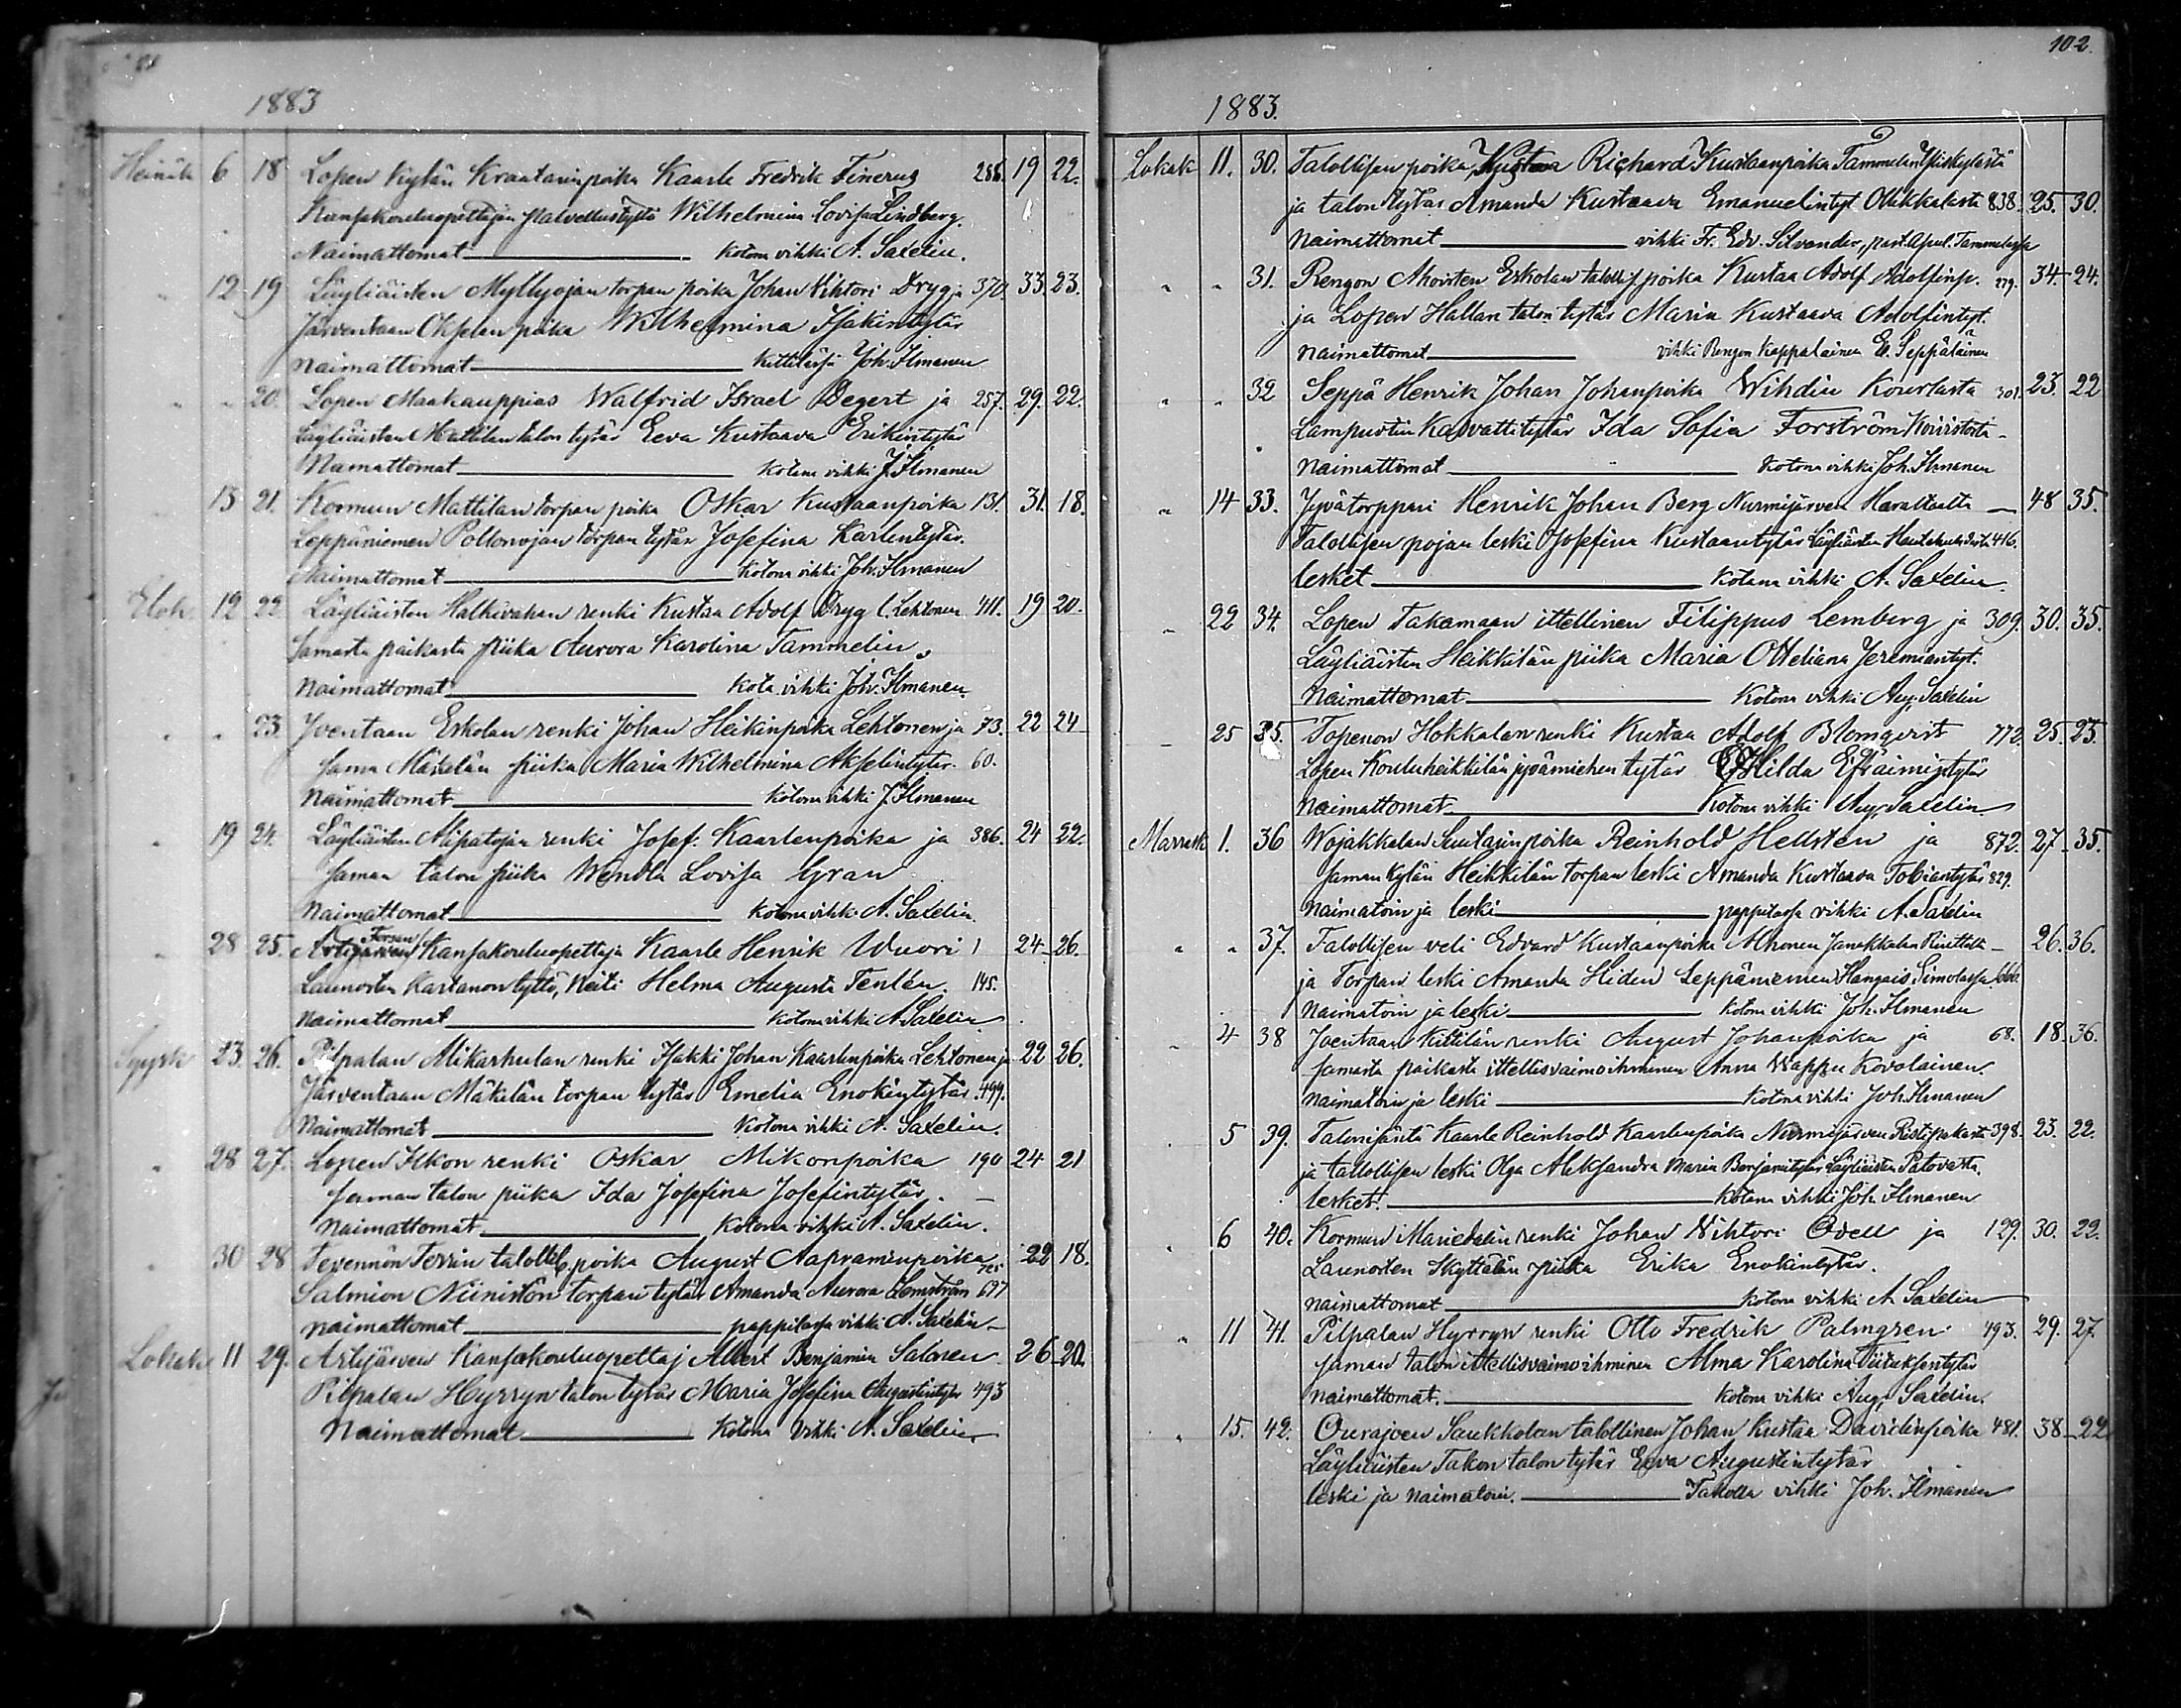 1883
Heinäk 6 18 Lopen kylän Kraatarin poika Kaarle Fredrik Finerus 288. 19 22.
Kansakouluopettajan palvellustyttö Wilhelmina Lovisa Lindberg.
Naimattomat kotona vihki A. Saxelin.
" 12 19 Läyliäisten Myllyojan torpan poika Johan Vihtori Dryg ja 370. 33. 23.
Järventaan Oksjelan piika Wilhelmina Isakintytär
naimattomat Kittilässä Joh. Ilmanen
" " 20. Lopen Maakauppias Walfrid Israel Degert ja 257. 29. 22.
Läyliäisten Mattilan talon tytär Eeva Kustaava Erikintytär
Naimattomat kotona vihki J. Ilmanen
13 21. Kormun Mattilan torpan poika Oskar Kustaanpoika 131. 31. 18.
Leppäniemen Poltonojan torpan tytär Josefina Karlentytär.
Naimattomat Kotona vihki Joh. Ilmanen
Elok 12 22 Läyliäisten Halkivahan renki Kustaa Adolf Dryg l. Lehtonen 411. 19 20.
Samasta paikasta piika Aurora Karolina Tammelin.
Naimattomat Kota vihki Joh. Ilmanen.
" " 23. Joentaan Eskolan renki Johan Heikinpoika Lehtonen ja 73. 22 24
Sama Mäkelän piika Maria Wilhelmina Akselintytär. 60.
Naimattomat kotona vihki J. Ilmanen
" 19 24. Läyliäisten Alipatojan renki Josef Kaarlenpoika ja 386. 24 22.
Saman talon piika Wendla Lovisa Gran
Naimattomat kotona vihki A. Saxelin.
" 28 25. Forssan Kansakouluopettaja Kaarle Henrik Wuori 1 24. 26.
Launosten Kartanon tyttö, Neiti Helma Augusta Tenlén. 145.
Naimattomat kotona vihki A. Saxelin
Syysk 23. 26. Pilpalan Mikarhulan renki Isakki Johan Kaarlenpoika Lehtonen ja 22 26.
Järventaan Mäkelän torpan tytär Emelia Enokintytär. 499.
Naimattomat Kotona vihki A. Saxelin.
" 28 27. Lopen Ilkon renki Oskar Mikonpoika 190 24 21
saman talon piika Ida Josefina Josefintytär.
naimattomat kotona vihki A. Saxelin.
" 30 28 Tevennön Terrin talollis. poika August Aapraminpoika 725 22 18.
Salmion Niinistön torpan tytär Amanda Aurora Lomström 697
naimattomat pappilassa vihki A. Saxelin
Lokak 11 29. Artjärven Kansakouluopettaj Albert Benjamin Salonen 26 20.
Pilpalan Hyrryn talon tytär Maria Josefina Augustintytär 493
Naimattomat kotona vihki A. Saxelin
102.
1883.
Lokak 11. 30. Talollisen poika Kustaa Richard Kustaanpoika Tammelan
ja talon tytär Amanda Kustaava Emanuelintyt Ollikkalasta 838. 25. 30.
Naimattomat vihki Fr. Edv. Silvander, past. Apul. Tammelassa
" " 31. Rengon Ahoisten Eskolan talollis. poika Kustaa Adolf Adolfinp. 279. 34. 24.
ja Lopen Hallan talon tytär Maria Kustaava Adolfintyt.
naimattomat vihki Rengon Kappalainen E. Seppäläinen
" " 32 Seppä Henrik Johan Johanpoika Wihdin Kourlasta 301. 23. 22
Lampuotin Kasvattitytär Ida Sofia Forström
Naimattomat kotona vihki Joh. Ilmanen
" 14 33. Jyvätorppari Henrik Johan Berg Nurmijärven 48 35.
Talollisen pojan leski Josefina Kustaantytär Läyliäisten 416.
lesket kotona vihki A. Saxelin
" 22 34. Lopen Takamaan ittellinen Filippus Lemberg ja 309. 30. 35.
Läyliäisten Heikkilän piika Maria Otteliana Jeremiantyt.
Naimattomat kotona vihki Aug. Saxelin
25 35. Topenon Hokkalan renki Kustaa Adolf Blomqvist 772. 25. 25.
Lopen Kouluheikkilän jyvämiehen tytär Hilda Efraimintytär
naimattomat Kotona vihki Aug. Saxelin
Marrask 1. 36 Wojakkalan Suutarin poika Reinhold Hellsten ja 872. 27. 35.
saman kylän Heikkilän torpan leski Amanda Kustaava Tobiantytär 829.
naimatoin ja leski pappilassa vihki A. Saxelin
" " 37. Talollisen veli Edvard Kustaanpoika Ahonen Janakkalan 26. 36.
ja Torpan leski Amanda Hiden Leppäniemen Hangais Simolassa 666.
Naimatoin ja leski kotona vihki Joh. Ilmanen
4 38 Joentaan Kittilän renki August Johanpoika ja 68. 18. 36.
samasta paikasta ittellisvaimoihminen Anna Wappu Kovolainen.
naimatoin ja leski kotona vihki Joh. Ilmanen
5 39. Talonisäntä Kaarle Reinhold Kaarlenpoika Nurmijärven 398. 23. 22.
ja tallollisen leski Olga Aleksandra Maria Benjamintytär Läyliäisten Patovasta.
lesket. kotona vihki Joh. Ilmanen
" 6 40. Kormun Mariedalin renki Johan Vihtori Odell ja 129. 30. 22.
Launosten Skyttälän piika Erika Enokintytär.
naimattomat kotona vihki A. Saxelin
" 11 41. Pilpalan Hyrryn renki Otto Fredrik Palmgren 493. 29. 27.
saman talon ittellisvaimoihminen Alma Karolina Tiituksentytär
Naimattomat. kotona vihki Aug. Saxelin.
" 15. 42. Ourajoen Saukkolan talollinen Johan Kustaa Davidinpoika 481. 38 22
Läyliäisten Takon talon tytär Eeva Augustintytär
leski ja naimatoin. Takolla vihki Joh. Ilmanen